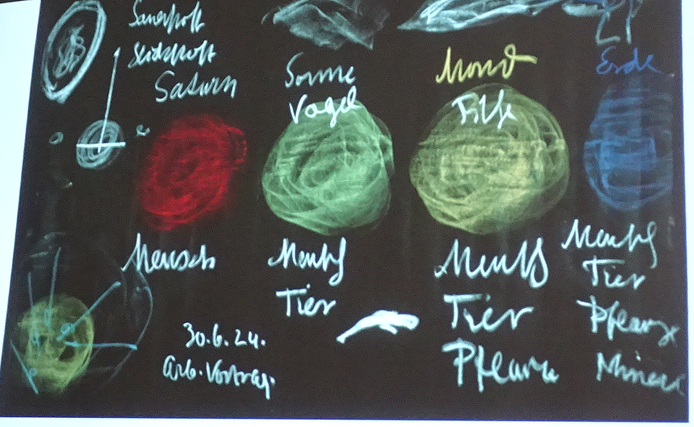 Sauerstoff
Stickstoff
Saturn
Sonne
Vogel
Mond
Fische
Erde
Mensch
Mensch
Tier
Mensch
Tier
Pflanze
Mensch
Tier
Pflanze
Mineral
30.6.24.
Arb. Vortrag.